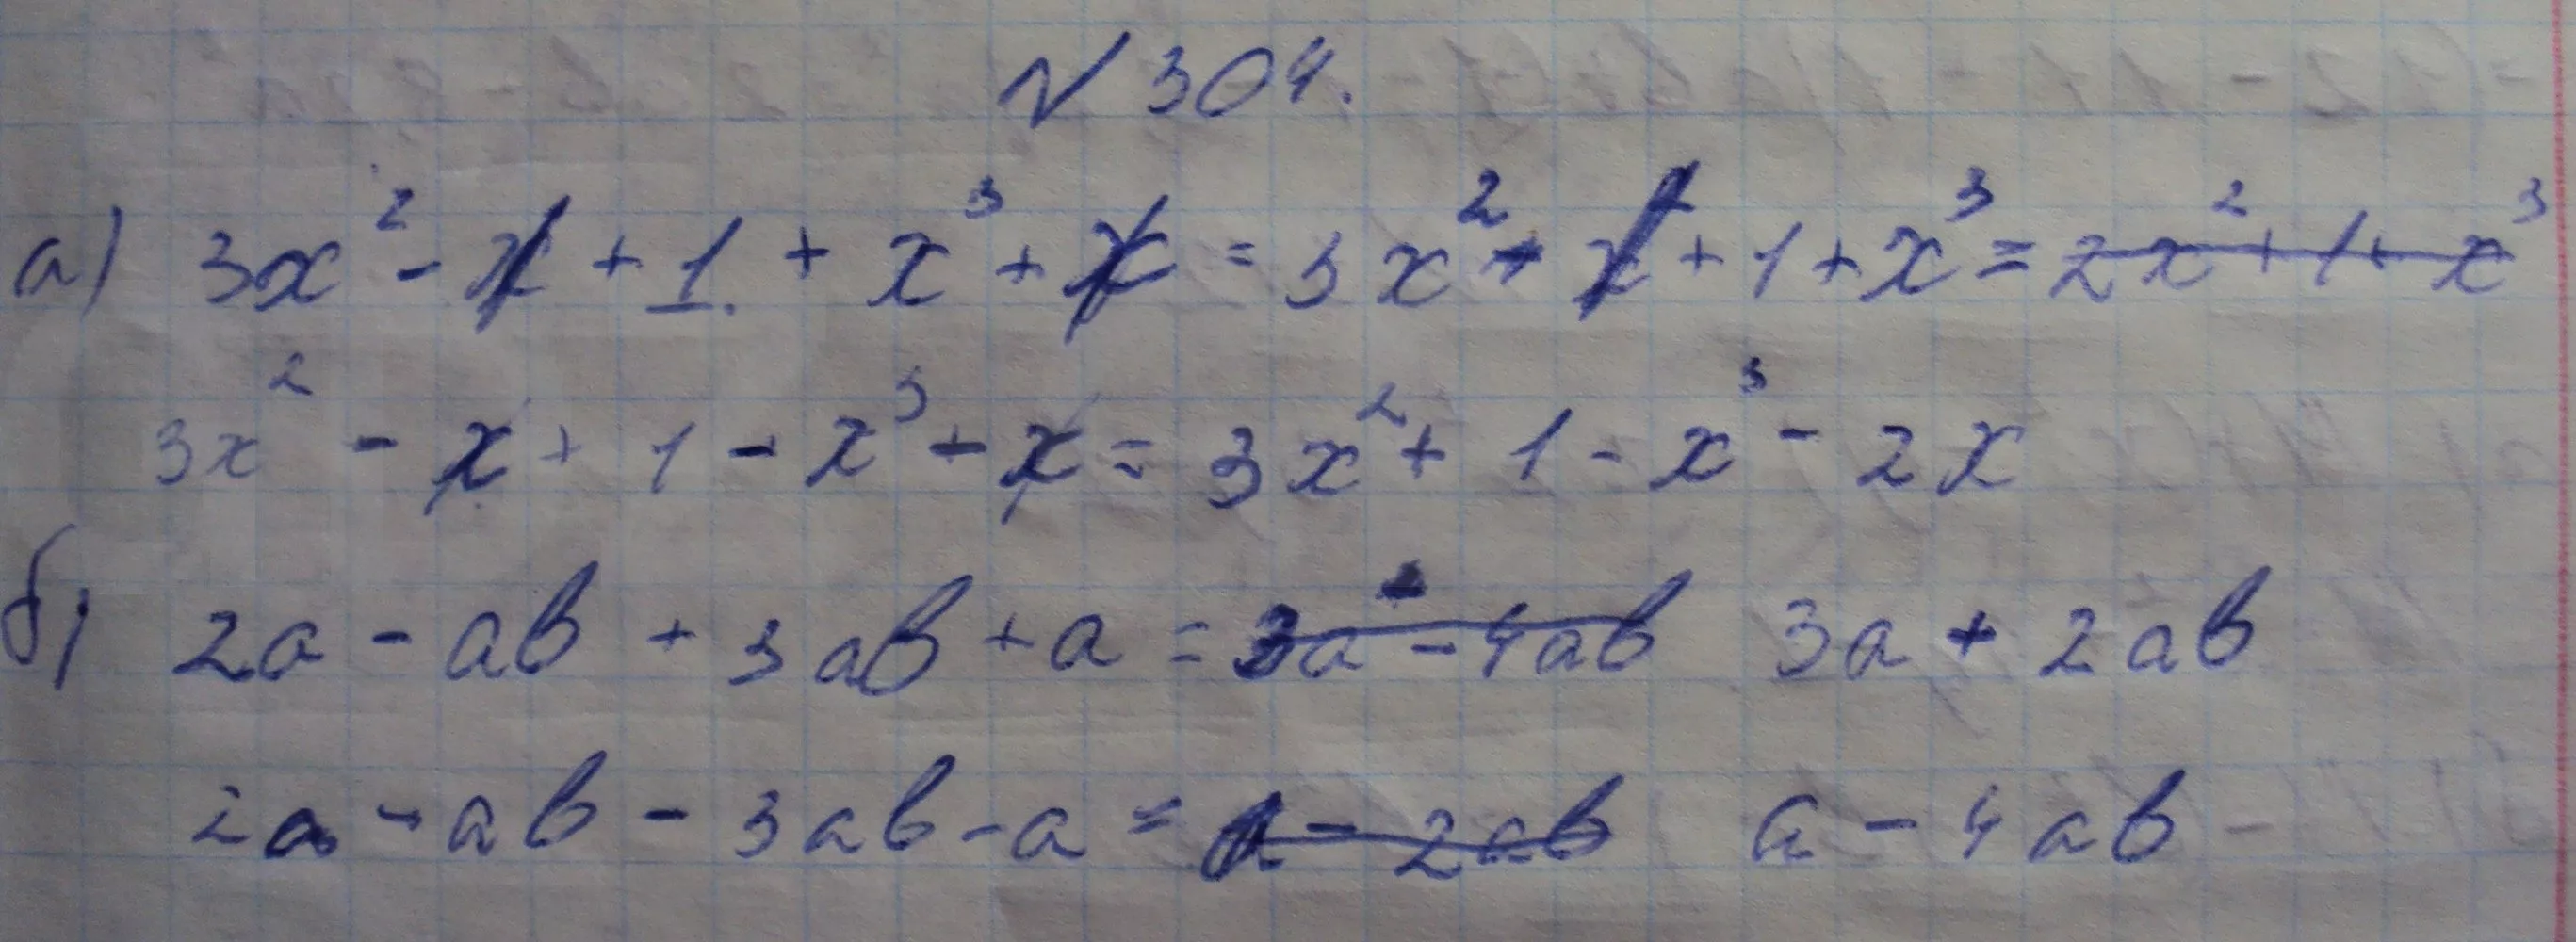 № 304.
а) 3x² - x + 1. + x³ + x = 3x² + x² + 1 + x³ = 2x² + 1 + x³
3x² - x + 1 - x³ - x = 3x² + 1 - x³ - 2x
б) 2a - ab + 3ab + a = 3a - 4ab 3a + 2ab
2a - ab - 3ab - a = a - 2ab a - 4ab